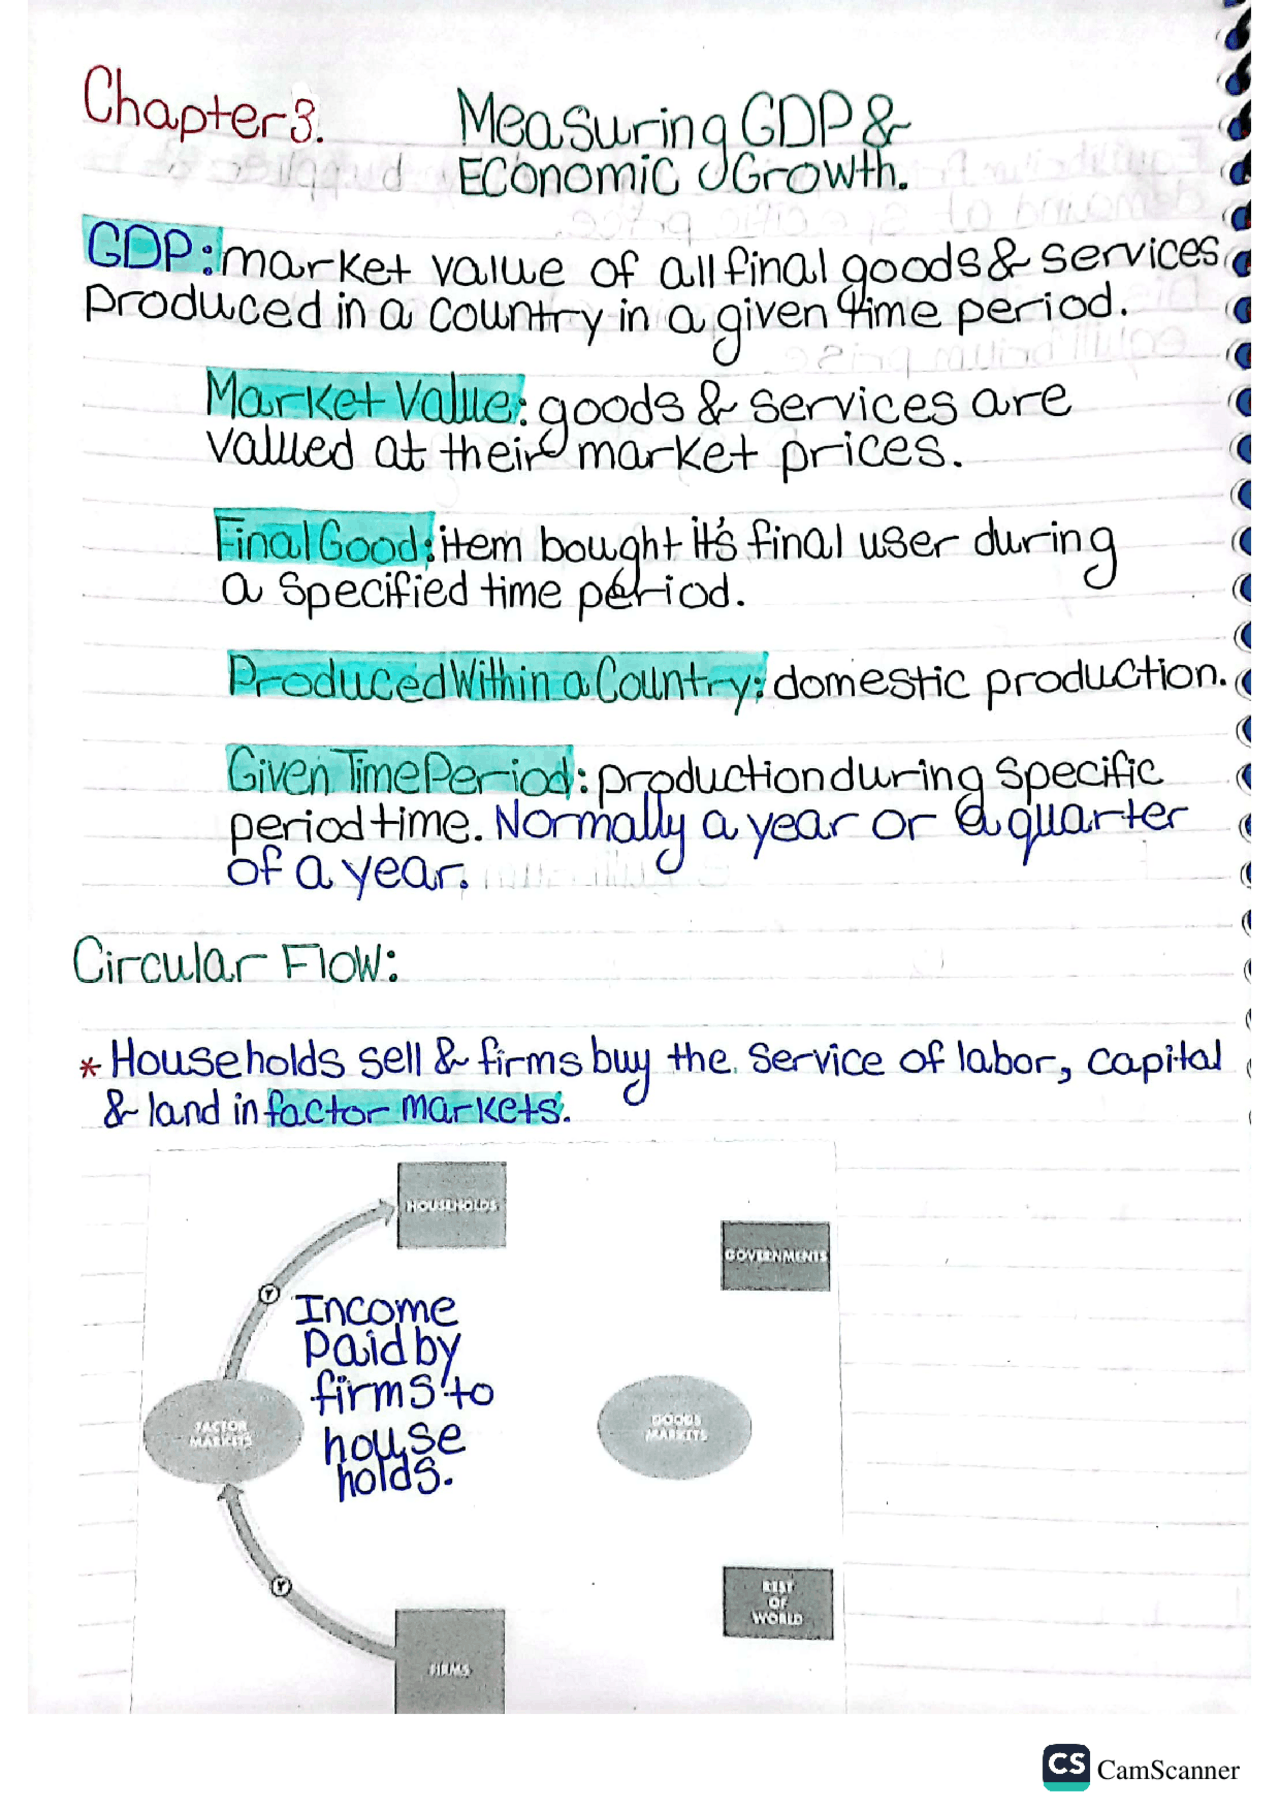 Chapter 3.
Measuring GDP &
Economic Growth.
GDP: market value of all final goods & services
produced in a country in a given time period.
Market Value: goods & services are
valued at their market prices.
Final Good: item bought it's final user during
a specified time period.
Produced Within a Country: domestic production.
Given Time Period: production during specific
period time. Normally a year or a quarter
of a year.
Circular Flow:
* Households sell & firms buy the service of labor, capital
& land in factor markets.
HOUSEHOLDS
GOVERNMENTS
Y
Income
Paid by
firms to
house
holds.
FACTOR
MARKETS
GOODS
MARKETS
Y
REST
OF
WORLD
FIRMS
CS CamScanner